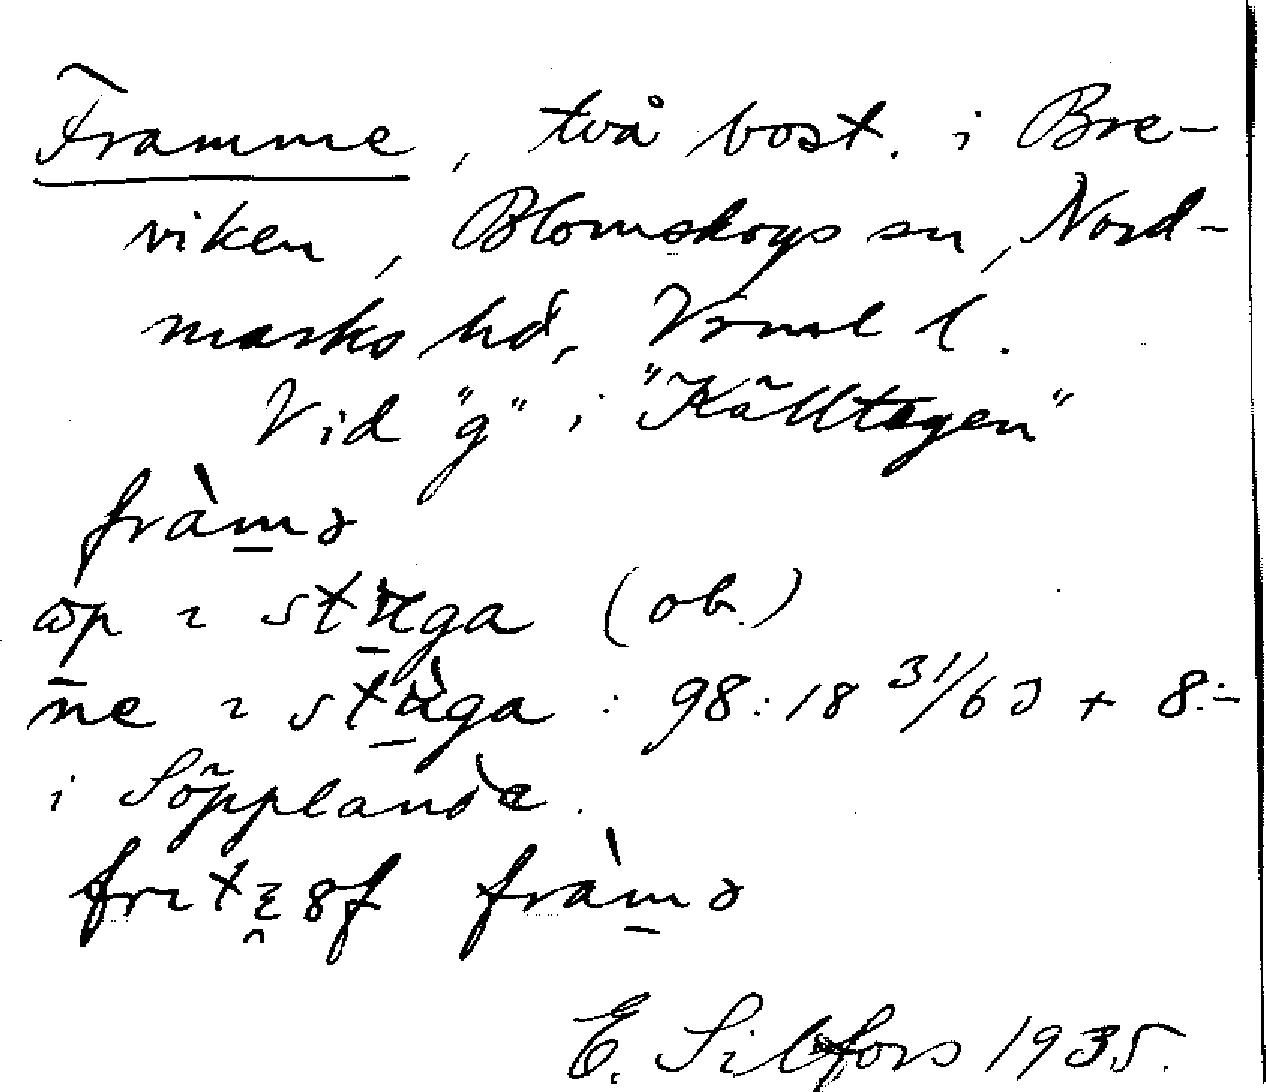 Framme, två bost. i Bre-
viken, Blomskogs sn, Nord-
marks hd, Värml l.
Vid "g" i "Källtegen"
fràmə
i stùga (ob.)
ne i stùga : 98:18 31/60 + 8:-
i Söpplande.
fràmə
E. Silfors 1935.